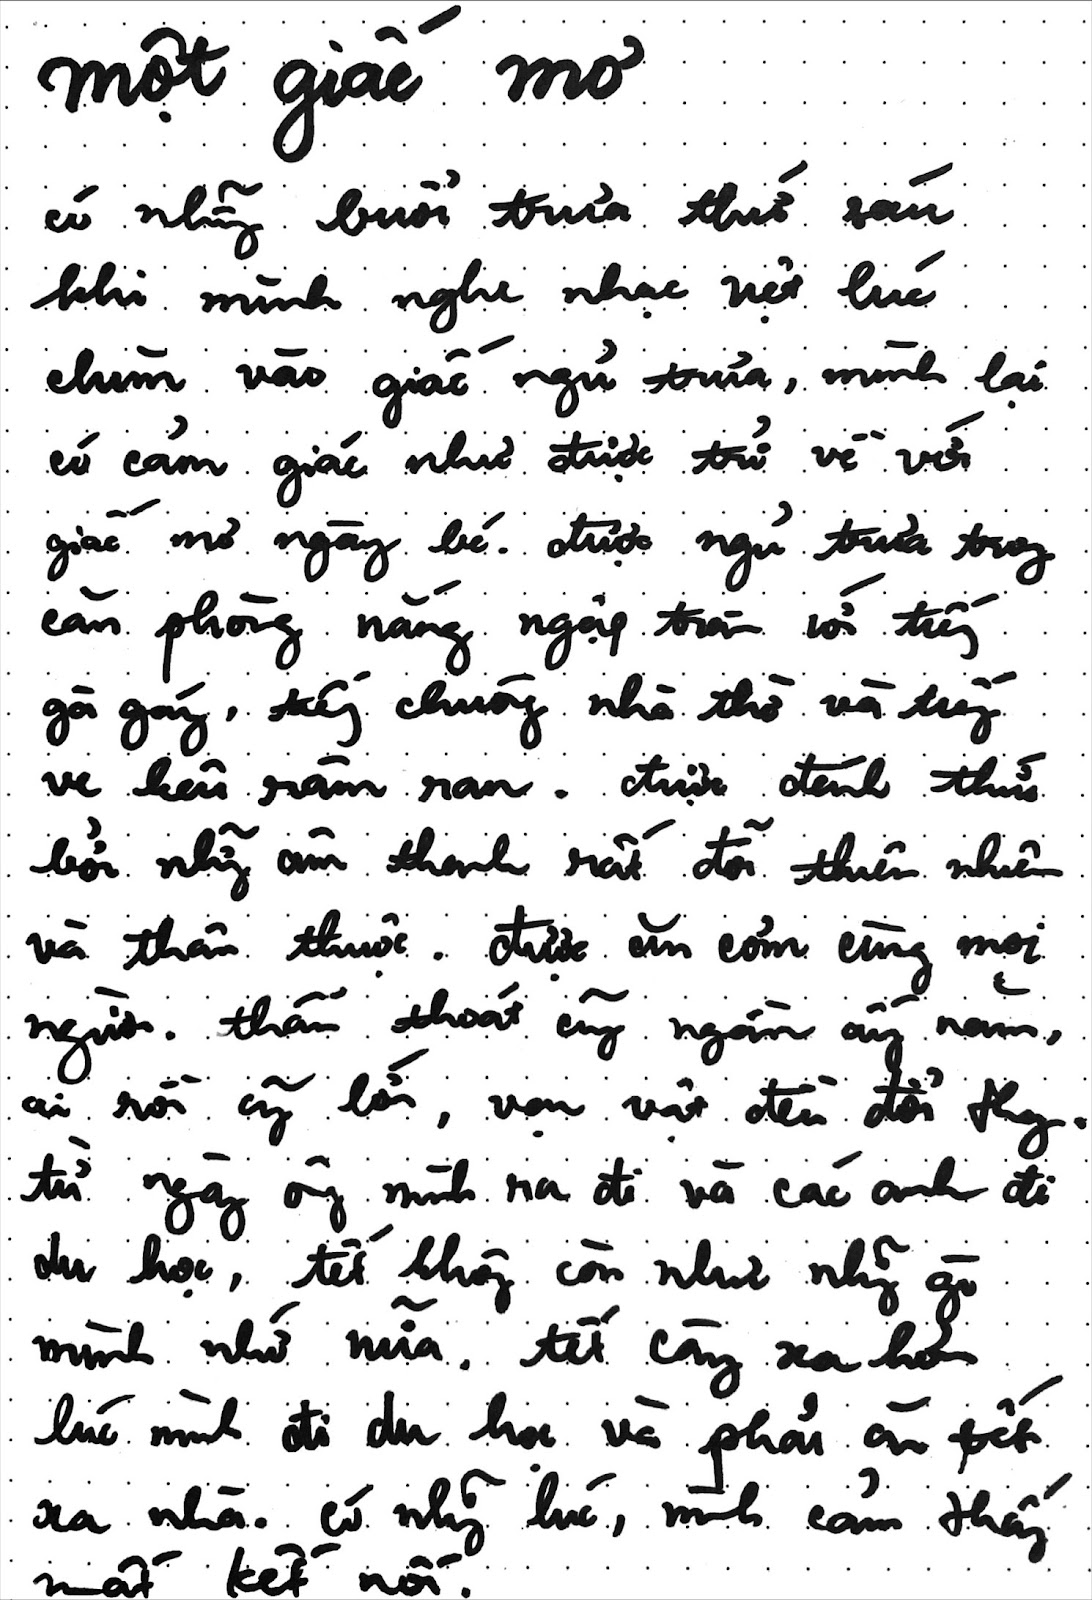 một giấc mơ
có những buổi trưa thứ sáu
khi mình nghe nhạc việt lúc
chìm vào giấc ngủ trưa, mình lại
có cảm giác như được trở về với
giấc mơ ngày bé. được ngủ trưa trong
căn phòng nắng ngập tràn với tiếng
gà gáy, tiếng chuông nhà thờ và tiếng
ve kêu râm ran. được đánh thức
bởi những âm thanh rất đỗi thiên nhiên
và thân thuộc. được ăn cơm cùng mọi
người. thấm thoát cũng ngần ấy năm,
ai rồi cũng lớn, vạn vật đều đổi thay.
từ ngày ông mình ra đi và các anh đi
du học, tết không còn như những gì
mình nhớ nữa. tết càng xa hơn
lúc mình đi du học và phải ăn tết
xa nhà. có những lúc, mình cảm thấy
mất kết nối.